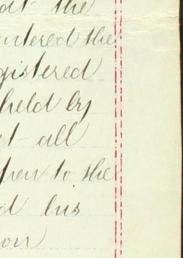 at the
entered the
gistered
held by
t all
pen to the
d his
on